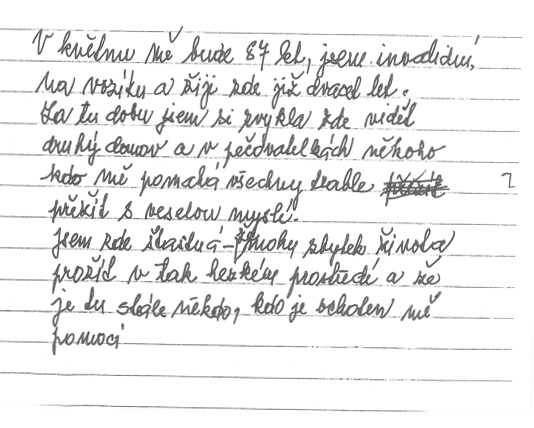 V květnu mě bude 87 let, jsem invalidní,
na vozíku a žiji zde již dvacet let.
Za tu dobu jsem si zvykla zde vidět
druhý domov a v pečovatelkách někoho
kdo mě pomáhá všechny trable
přežít s veselou myslí.
jsem zde šťastná - že mohu zbytek života
prožít v tak hezkém prostředí a že
je tu stále někdo, kdo je ochoten mě
pomoci